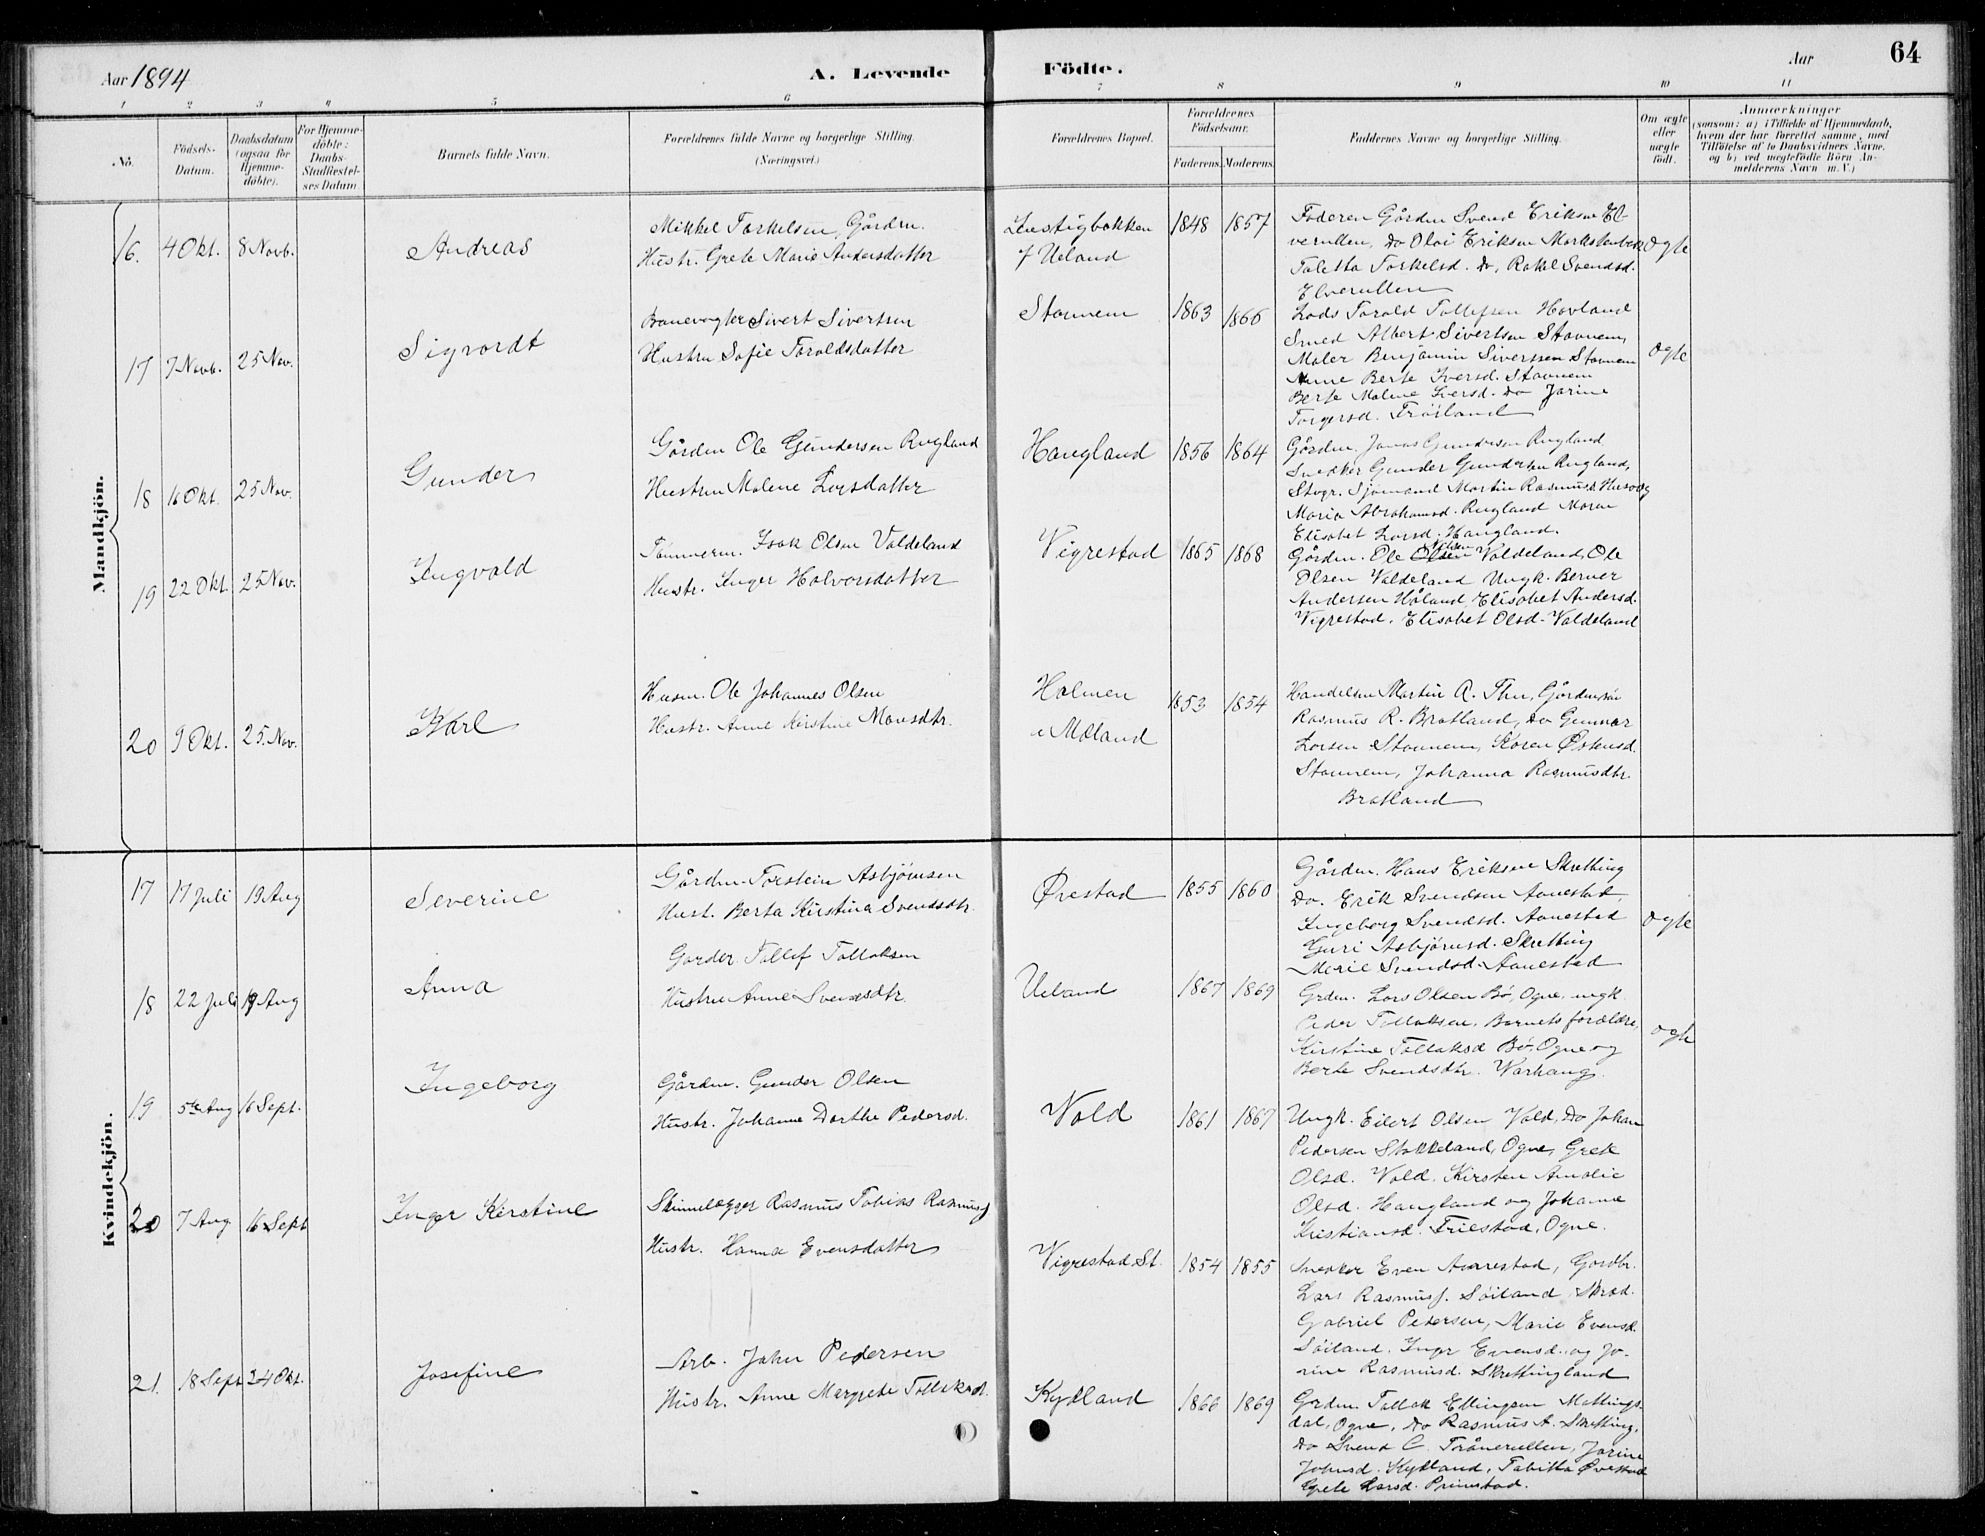 Aar 1894
A. Levende Födte.
Aar
64
1 2 3 4 5 6 7 8 9 10 11
No.
Födsels-Datum.
Daabsdatum (ogsaa for Hjemme-döbte).
For Hjemme-döbte: Daabs-Stadfæstel-ses Datum
Barnets fulde Navn.
Forældrenes fulde Navne og borgerlige Stilling. (Næringsvei.)
Forældrenes Bopæl.
Forældrenes Födselsaar.
Faderens. Moderens.
Faddernes Navne og borgerlige Stilling.
Om ægte eller uægte födt.
Anmærkninger (saasom: a) i Tilfælde af Hjemmedaab, hvem der har forrettet samme, med Tilföielse af to Daabsvidners Navne. og b) ved uægtefödte Börn An-melderens Navn m. V.)
Mandkjön.
16. 4 Okt. 8 Novb. Andreas
Mikkel Torkelsen, Gårdm.
Hustr. Grete Marie Andersdatter
Lustigbakken
/ Ueland
1848 1857
Faderen Gårdm Svend Eriksen El-
verullen, Do Olai Eriksen
Taletta Torkelsd. Do, Rakel Svendsd.
Elverullen
Ogte
17 7 Novb. 25 Nov. Sigvardt
Banevogter Sivert Sivertsen
Hustru Sofie Toroldsdatter
Stavnem
1863 1866
Lods Torold Tollefsen Hovland
Smed Albert Sivertsen Stavnem,
Maler Benjamin Siverssen Stavnem
Anne Berte Iversd. Stavnem
Berte Malene Iversd. Do Jorine
Torgersd. Fröiland
Ogte
18 16 Okt. 25 Nov. Gunder
Gårdm Ole Gundersen Rugland
Hustru Malene Larsdatter
Haugland
1856 1864
Gårdm. Jonas Gundersen Rugland
Snedker Gunder Gundersen Rugland,
Stvgr. Sjömand Martin Rasmuss.
Maria Abrahamsd. Rugland
Elisabet Larsd. Haugland.
19 22 Okt. 25 Nov. Ingvald
Tömmerm. Isak Olsen Valdeland
Hustr. Inger Halvorsdatter
Vigrestad
1865 1868
Gårdm. Ole Olsen Valdeland, Ole
Olsen Valdeland Ungk. Berner
Andersen Håland, Elisabet Andersd.
Vigrestad, Elisabet Olsd. Valdeland
20 9 Okt. 25. Nov. Karl
Husm. Ole Johannes Olsen
Hustr. Anne Kirstine Monsdtr.
Holmen
i Moland
1853 1854
Handelsm Martin A. Thu, Gårdm
Rasmus R. Bratland, Do Gunnar
Larsen Stavnem, Karen Østensd.
Stavnem, Johanna Rasmusdtr.
Bratland
Kvindekjön.
17 17 Juli 19 Aug Severine
Gårdm. Torstein Asbjörnsen
Hust. Berta Kirstina Svendsdtr.
Ørestad
1855 1860
Gårdm. Hans Eriksen Skretting
Do. Erik Svendsen Aanestad,
Ingeborg Svendsd. Aanestad
Guri Asbjörnsd. Skretting
Merie Svendsd. Aanestad
Ogte
18 22 Juli 19 Aug Anna
Gorder. Tollef Tollaksen
Hustru Anne Svendsdtr.
Ueland
1867 1869
Grdm. Lars Olsen Bö, Ogne, ungk.
Peder Tollaksen, Barnets forældre,
Kirstine Tollaksd Bö, Ogne og
Berte Svendsdtr. Varhaug.
ogte
19 5te Aug 16 Sept. Ingeborg
Gårdm. Gunder Olsen
Hustr. Johanne Dorthe Pedersd.
Vold
1861 1867
Ungk. Eilert Olsen Vold, Do Johan
Pedersen Stokkeland, Ogne, Grete
Olsd. Vold. Kirsten Amalie
Olsd. Haugland og Johanne
Kristiansd. Friestad, Ogne.
20 7 Aug 16 Sept Inger Kirstine
Skinnelægger Rasmus Tobias Rasmuss.
Hustr. Hanna Evensdatter
Vigrestad St.
1854 1855
Snedker Even Aanestad, Gardbr.
Lars Rasmuss. Söiland, Skræd.
Gabriel Pedersen, Marie Evensd.
Söiland. Inger Evensd. og Jo-
rine Rasmusd. Skrettingland
21. 18 Sept 24 Okt. Josefine
Arb. John Pedersen
Hustr. Anne Margrete Tollaksd.
Kydland
1866 1869
Grdm. Tollak Ellingsen Mattings-
dal, Ogne, Do Rasmus A. Skretting,
Do Svend C. Trånerullen, Jorine
Johnsd. Kydland, Tabitta Ørestad
Grete Larsd. Primstad.